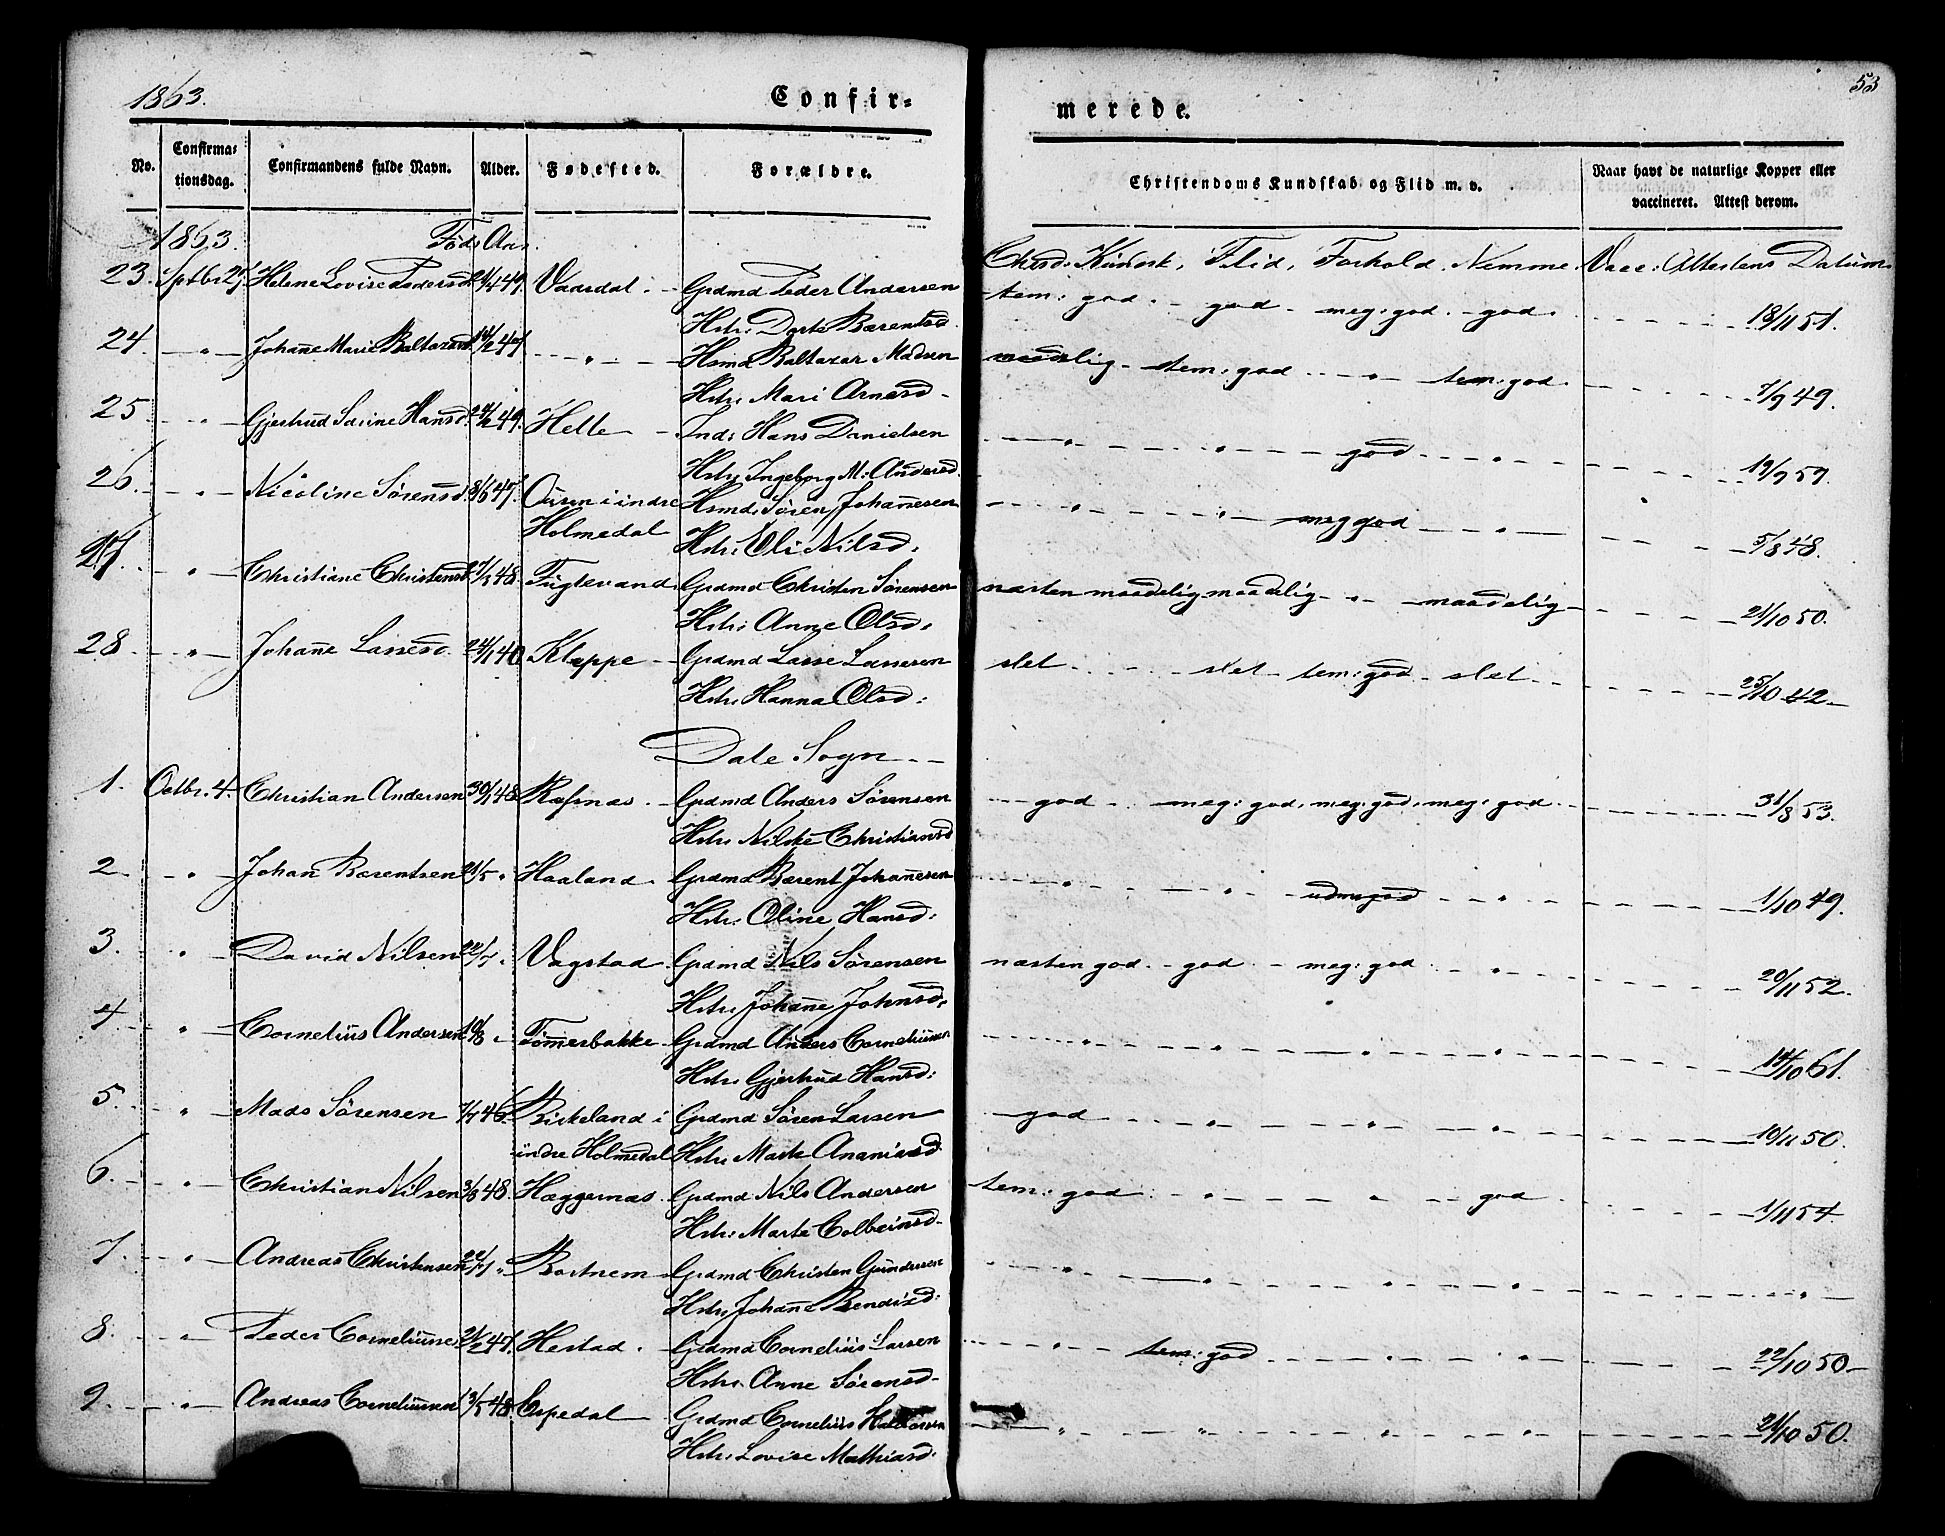 1863.
Confir=
merede.
53
No.
Confirma=
tionsdag.
Confirmandens fulde Navn.
Alder.
Fødested.
Forældre.
Christendoms Kundskab og Flid m. v.
Naar havt de naturlige Kopper eller
vaccineret. Attest derom.
1863. Føds Aar. Chrsd: Kundsk, Flid, Forhold, Nemme. Vacc: Attestens Datum.
23. Sptbr 27. Helene Lovise Pedersd. 49. Vaardal. Grdmd Peder Andersen tem: god. - god - meg: god. - god. 18/11 51.
Hstr: Dorte Bærentsd.
24 " Johanne Marie Baltazarsd. 14/2 47 " Hsmd Baltazar Madsen maadelig - tem: god " tem: god 7/9 49.
Hstr: Mari Arnesd -
25 " Gjertrud Serine Hansd. 24/2 49. Helle - Ind: Hans Danielsen " " god " 19/7 59.
Hstr: Ingeborg M: Andersd.
26. " Nicoline Sørensd. 8/6 47. i indre Hsmd: Søren Johannesen " " meg god " 5/8 48.
Holmedal Hstr: Oli Nilsd.
27. " Christiane Christensd. 7/3 48. Fuglevand. Grdmd Christen Sørensen næsten maadelig maadelig - " - maadelig 21/10 50.
Hstr: Anne Olsd.
28 " Johanne Lassesd. 24/1 40 Kleppe - Grdmd Lasse Lassesen slet - slet - tem: god - slet 25/10 42 -
Hstr: Hanna Olsd:
Dale Sogn -
1. Octbr. 4. Christian Andersen 30/1 48 Grdmd Anders Sørensen - god - meg: god, meg: god, meg: god 31/8 53.
Hstr: Nilske Christiansd
2 " Johan Bærentsen 21/5 " Haaland. Grdmd Bærent Johannesen " " udm: god " 1/10 49.
Hstr: Oline Hansd:
3. " David Nilsen 22/7 " Vagstad. Grdmd Nils Sørensen næsten god - god - meg: god " 20/11 52.
Hstr: Johanne Johnsd.
4 " Cornelius Andersen 10/8 " Tømmerbakke Grdmd Anders Corneliussen " " " " 14/10 61.
Hstr: Gjertrud Hansd:
5. " Mads Sørensen 7/7 46. Birkeland i Grdmd Søren Larsen god " " " 10/11 50.
indre Holmedal Hstr: Marte Ananiasd
6. " Christian Nilsen 3/8 48. Heggernæs. Grdmd Nils Andersen tem: god " " god 1/11 54.
Hstr: Marte Colbeinsd -
7. " Andreas Christensen 22/7 " Bortnem. Grdmd Christen Gundersen " " " " "
Hstr: Johanne Bendixd:
8. " Peder Corneliussen 21/2 47. Hestad. Grdmd Cornelius Larsen " tem: god " " 22/10 50 -
Hstr: Anne Sørensd -
9. " Andreas Corneliussen 13/5 48. Espedal Grdmd Cornelius " " " " 21/10 50.
Hstr: Lovise Mathiasd: